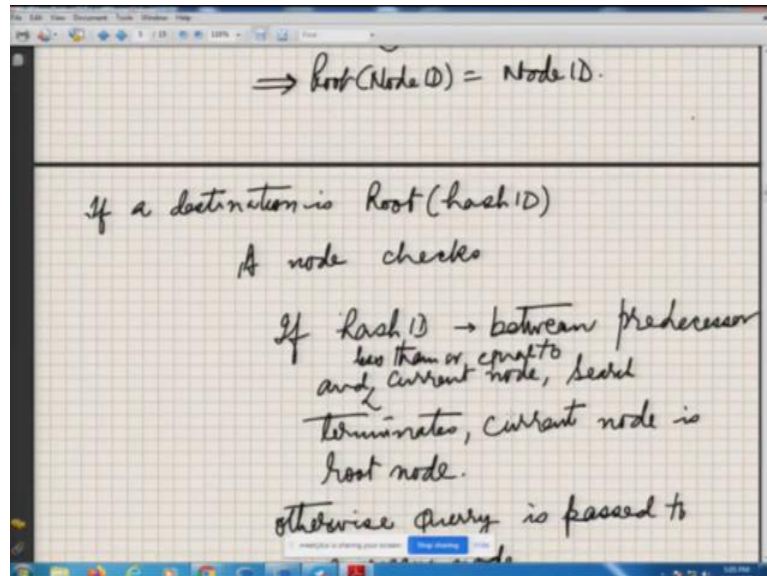 File Edit View Document Tools Window Help
5 / 15 100% Find
⟹ Root(Node ID) = Node ID.
If a destination is Root(hash ID)
A node checks
If hash ID → between predecessor
less than or equal to
and current node, search
terminates, current node is
root node.
otherwise query is passed to
Stop sharing Hide
node
5:05 PM